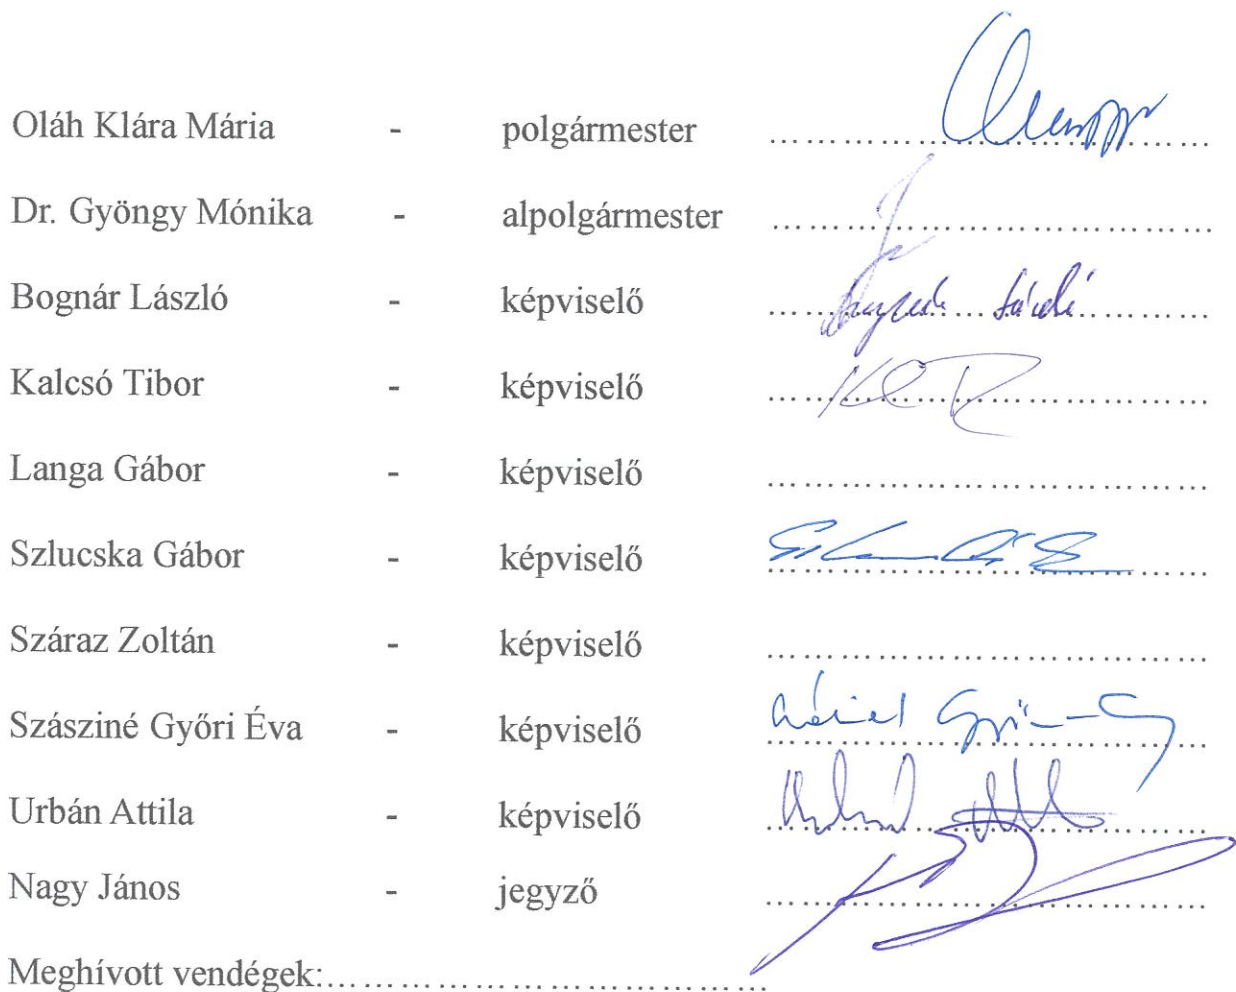 Oláh Klára Mária - polgármester ........................................
Dr. Gyöngy Mónika - alpolgármester ........................................
Bognár László - képviselő ........................................
Kalcsó Tibor - képviselő ........................................
Langa Gábor - képviselő ........................................
Szlucska Gábor - képviselő ........................................
Száraz Zoltán - képviselő ........................................
Szásziné Győri Éva - képviselő ........................................
Urbán Attila - képviselő ........................................
Nagy János - jegyző ........................................
Meghívott vendégek:........................................